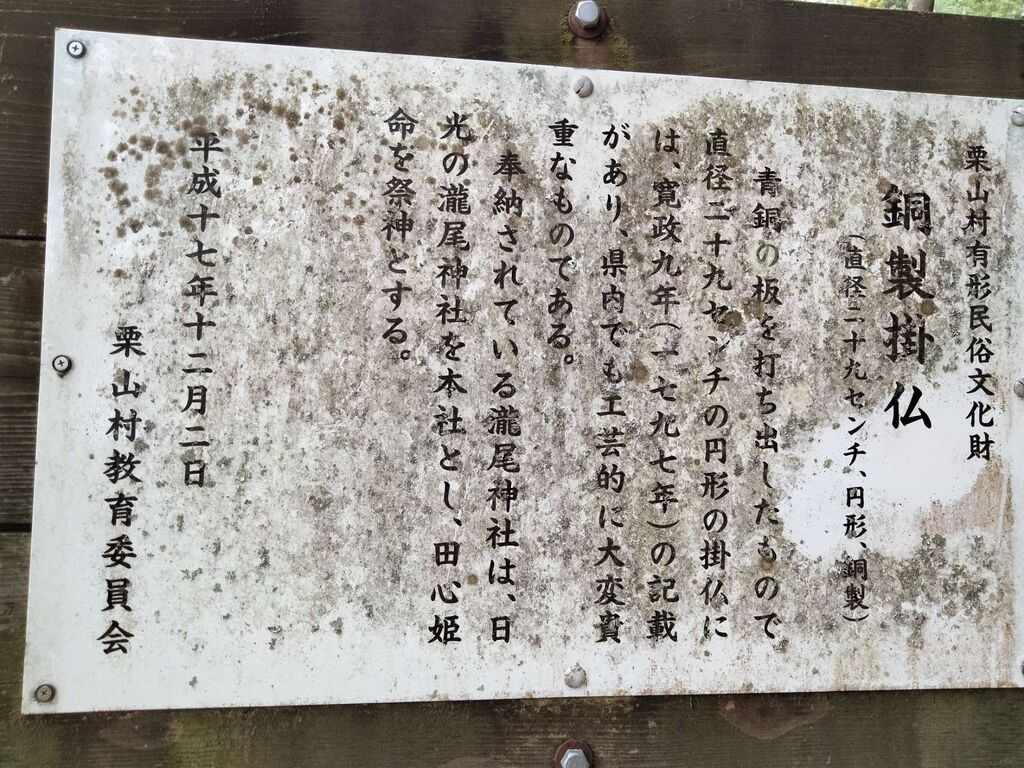 栗山村有形民俗文化財
銅製掛仏
(直径二十九センチ、円形、銅製)
青銅の板を打ち出したもので
直径二十九センチの円形の掛仏に
は、寛政九年(一七九七年)の記載
があり、県内でも工芸的に大変貴
重なものである。
奉納されている瀧尾神社は、日
光の瀧尾神社を本社とし、田心姫
命を祭神とする。
平成十七年十二月二日
栗山村教育委員会